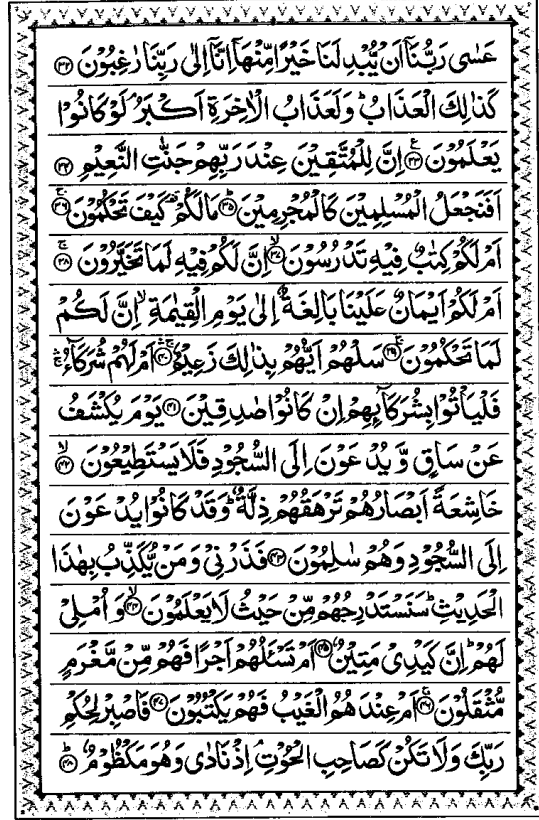 عَسٰى رَبُّنَاۤ اَنْ يُّبْدِلَنَا خَيْرًا مِّنْهَاۤ اِنَّاۤ اِلٰى رَبِّنَا رٰغِبُوْنَ ﴿۳۲﴾
كَذٰلِكَ الْعَذَابُ ؕ وَلَعَذَابُ الْاٰخِرَةِ اَكْبَرُ ۘ لَوْ كَانُوْا
يَعْلَمُوْنَ ﴿۳۳﴾ اِنَّ لِلْمُتَّقِيْنَ عِنْدَ رَبِّهِمْ جَنّٰتِ النَّعِيْمِ ﴿۳۴﴾
اَفَنَجْعَلُ الْمُسْلِمِيْنَ كَالْمُجْرِمِيْنَ ﴿۳۵﴾ مَا لَكُمْ كَيْفَ تَحْكُمُوْنَ ﴿۳۶﴾
اَمْ لَكُمْ كِتٰبٌ فِيْهِ تَدْرُسُوْنَ ﴿۳۷﴾ اِنَّ لَكُمْ فِيْهِ لَمَا تَخَيَّرُوْنَ ﴿۳۸﴾
اَمْ لَكُمْ اَيْمَانٌ عَلَيْنَا بَالِغَةٌ اِلٰى يَوْمِ الْقِيٰمَةِ ۙ اِنَّ لَكُمْ
لَمَا تَحْكُمُوْنَ ﴿۳۹﴾ سَلْهُمْ اَيُّهُمْ بِذٰلِكَ زَعِيْمٌ ﴿۴۰﴾ اَمْ لَهُمْ شُرَكَآءُ
فَلْيَاْتُوْا بِشُرَكَآئِهِمْ اِنْ كَانُوْا صٰدِقِيْنَ ﴿۴۱﴾ يَوْمَ يُكْشَفُ
عَنْ سَاقٍ وَّيُدْعَوْنَ اِلَى السُّجُوْدِ فَلَا يَسْتَطِيْعُوْنَ ﴿۴۲﴾
خَاشِعَةً اَبْصَارُهُمْ تَرْهَقُهُمْ ذِلَّةٌ ؕ وَقَدْ كَانُوْا يُدْعَوْنَ
اِلَى السُّجُوْدِ وَهُمْ سٰلِمُوْنَ ﴿۴۳﴾ فَذَرْنِيْ وَمَنْ يُّكَذِّبُ بِهٰذَا
الْحَدِيْثِ ؕ سَنَسْتَدْرِجُهُمْ مِّنْ حَيْثُ لَا يَعْلَمُوْنَ ﴿۴۴﴾ وَاُمْلِيْ
لَهُمْ ؕ اِنَّ كَيْدِيْ مَتِيْنٌ ﴿۴۵﴾ اَمْ تَسْـَٔلُهُمْ اَجْرًا فَهُمْ مِّنْ مَّغْرَمٍ
مُّثْقَلُوْنَ ﴿۴۶﴾ اَمْ عِنْدَهُمُ الْغَيْبُ فَهُمْ يَكْتُبُوْنَ ﴿۴۷﴾ فَاصْبِرْ لِحُكْمِ
رَبِّكَ وَلَا تَكُنْ كَصَاحِبِ الْحُوْتِ ۘ اِذْ نَادٰى وَهُوَ مَكْظُوْمٌ ﴿۴۸﴾